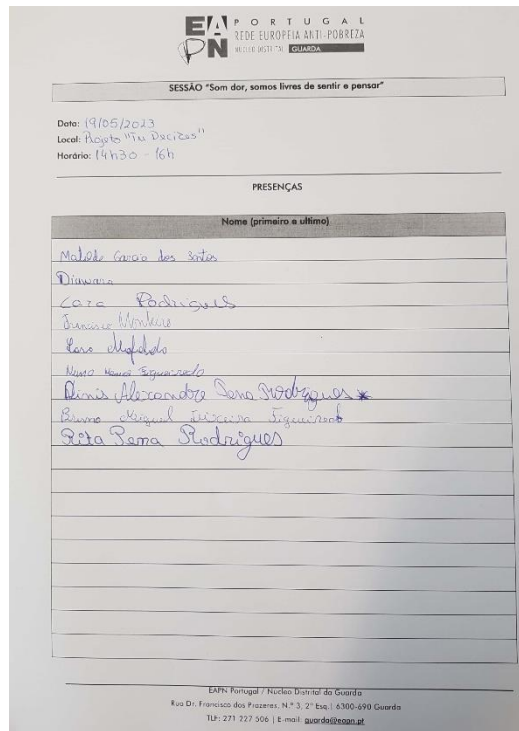 EAPN PORTUGAL
REDE EUROPEIA ANTI-POBREZA
NÚCLEO DISTRITAL GUARDA
SESSÃO "Som dor, somos livres de sentir e pensar"
Data: 19/05/2023
Local: Projeto "Tu Decides"
Horário: 14h30 - 16h
PRESENÇAS
Nome (primeiro e ultimo)
dos Santos
Diawara
Lara Rodrigues
Francisco Monteiro
Mafalda
Nuno Figueiredo
Dinis Alexandre Pena Rodrigues *
Bruno Miguel Teixeira Figueiredo
Rita Pena Rodrigues
EAPN Portugal / Nucleo Distrital da Guarda
Rua Dr. Francisco dos Prazeres, N.º 3, 2º Esq.| 6300-690 Guarda
Tlf: 271 227 506 | E-mail: guarda@eapn.pt